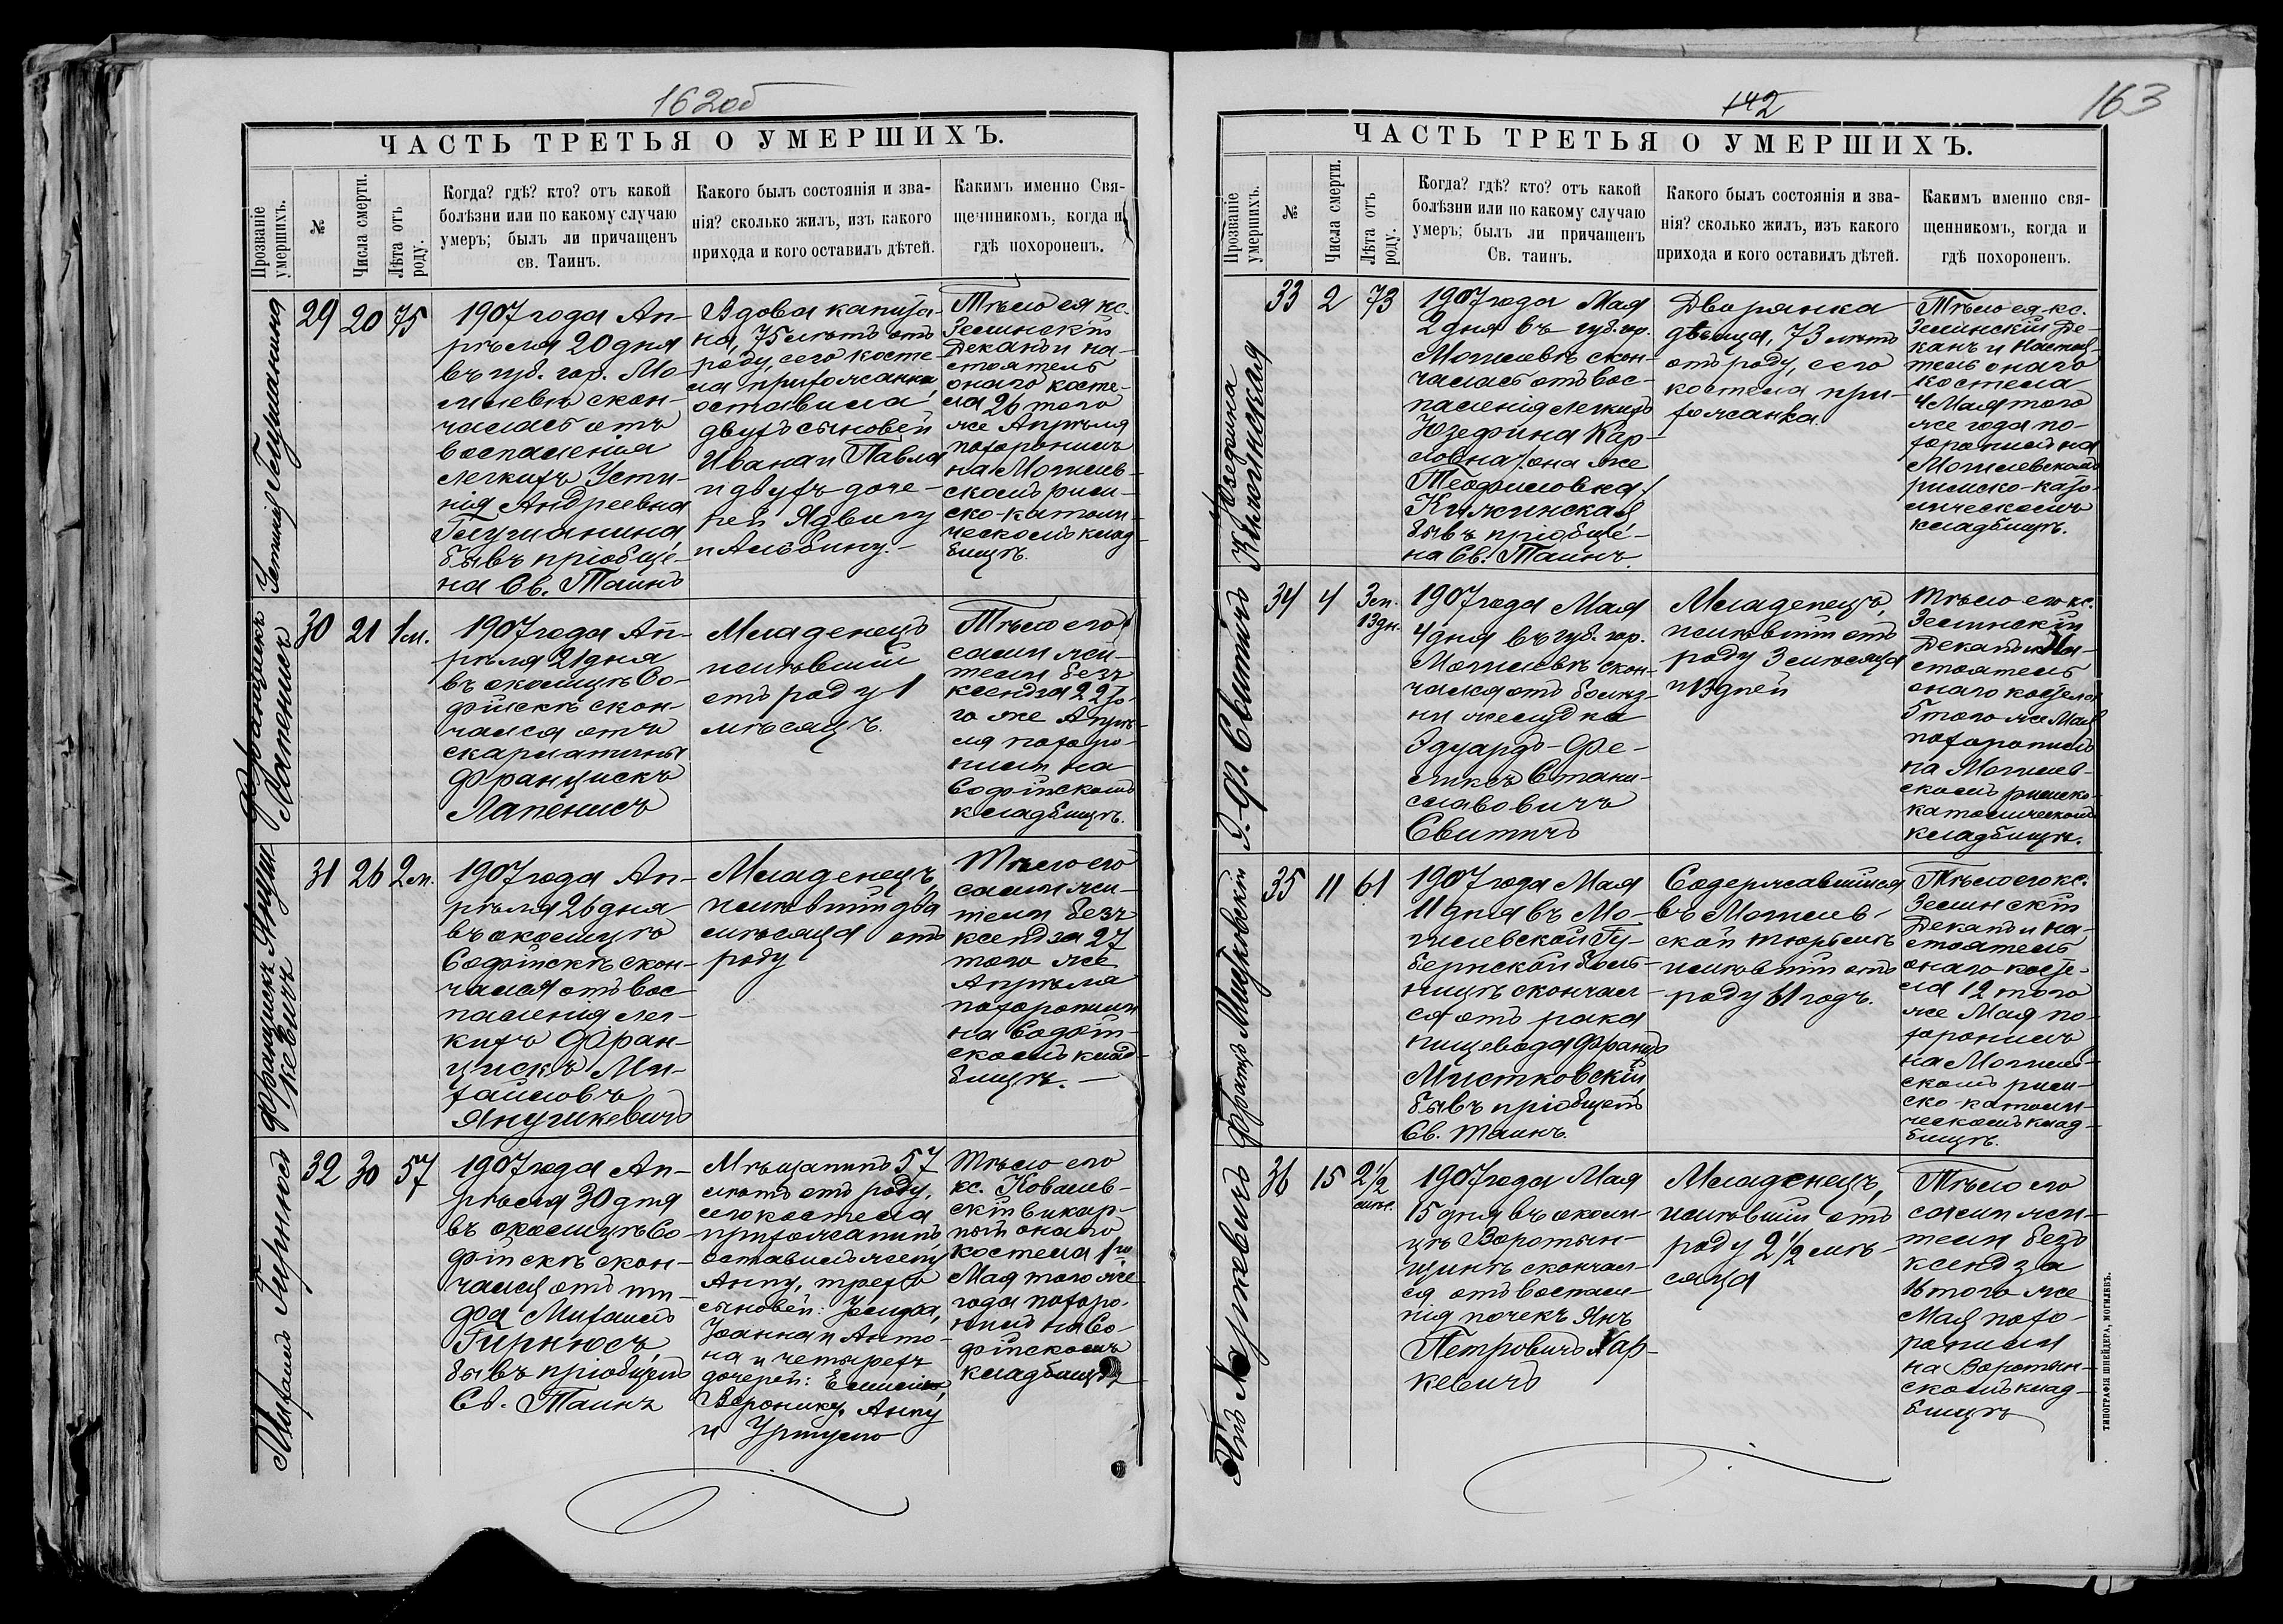 162об
ЧАСТЬ ТРЕТЬЯ О УМЕРШИХЪ.
Прозваніе умершихъ.
№
Числа смерти.
Лѣта отъ роду.
Когда? гдѣ? кто? отъ какой
болѣзни или по какому случаю
умеръ; былъ ли причащенъ
св. Таинъ.
Какого былъ состоянія и зва-
нія? сколько жилъ, изъ какого
прихода и кого оставилъ дѣтей.
Каким именно Свя-
щенникомъ, когда и
гдѣ похороненъ.
Устинія Глушанина
29
20
75
1907 года Ап-
рѣля 20 дня
въ губ. гор. Мо-
гилевѣ скон-
чалась отъ
воспаленія
легкихъ Усти-
нія Андреевна
Глушанина,
бывъ пріобще-
на Св. Таинъ
Вдова капита-
на, 75 лѣтъ отъ
роду, сего косте-
ла прихожанка
оставила
двухъ сыновей
Ивана и Павла
и двухъ доче-
рей Ядвигу
и Альбину.-
Тѣло ея кс.
Зелинскій
Деканъ и на-
стоятель
онаго косте-
ла 26 того
же Апрѣля
похоронилъ
на Могилев-
скомъ рим-
ско-католи-
ческомъ клад-
бищѣ.
Францискъ
Лапенисъ
30
21
1 м.
1907 года Ап-
рѣля 21 дня
въ околицѣ Со-
фійскѣ скон-
чался отъ
скарлатины
Францискъ
Лапенисъ
Младенецъ
имѣвшій
отъ роду 1
мѣсяцъ.
Тѣло его
сами жи-
тели безъ
ксендза 22 то-
го же Апрѣ-
ля похоро-
нили на
Софійскомъ
кладбищѣ.
Францискъ Януш-
кевичъ
31
26
2 м.
1907 года Ап-
рѣля 26 дня
въ околицѣ
Софійскѣ скон-
чался отъ вос-
паленія лег-
кихъ Фран-
цискъ Ми-
хайловъ
Янушкевичъ
Младенецъ,
имѣвшій два
мѣсяца отъ
роду
Тѣло его
сами жи-
тели безъ
ксендза 27
того же
Апрѣля
похоронили
на Софій-
скомъ клад-
бищѣ. —
Михаилъ Гирнюсъ
32
30
57
1907 года Ап-
рѣля 30 дня
въ околицѣ Со-
фійскѣ скон-
чался отъ ти-
фа Михаилъ
Гирнюсъ,
бывъ пріобщенъ
Св. Таинъ
Мѣщанинъ 57
лѣтъ отъ роду,
сего костела
прихожанинъ
оставилъ жену
Анну, трехъ
сыновей:
Іоанна и Анто-
на и четырехъ
дочерей:
Веронику, Анну
и Уршулю
Тѣло его
кс. Ковалев-
скій викар-
ный онаго
костела 1го
Мая того же
года похоро-
нилъ на Со-
фійскомъ
кладбищѣ
142
163
ЧАСТЬ ТРЕТЬЯ О УМЕРШИХЪ.
Прозваніе умершихъ.
№
Числа смерти.
Лѣта отъ роду.
Когда? гдѣ? кто? отъ какой
болѣзни или по какому случаю
умеръ; былъ ли причащенъ
Св. таинъ.
Какого былъ состоянія и зва-
нія? сколько жилъ, изъ какого
прихода и кого оставилъ дѣтей.
Каким именно свя-
щенникомъ, когда и
гдѣ похороненъ.
Юзефина
33
2
73
1907 года Мая
2 дня въ губ. гор.
Могилевѣ скон-
чалась отъ вос-
паленія легкихъ
Юзефина Кар-
ловна /она же
Теофиловна/
бывъ пріобще-
на Св. Таинъ.
Дворянка
дѣвица, 73 лѣтъ
отъ роду, сего
костела при-
хожанка.
Тѣло ея кс.
Зелинскій Де-
канъ и Настоя-
тель онаго
костела
4 Мая того
же года по-
хоронилъ на
Могилевскомъ
римско-като-
лическомъ
кладбищѣ.
Э.-Ф. Свитичъ
34
4
3 м.
13 дн.
1907 года Мая
4 дня въ губ. гор.
Могилевѣ скон-
чался отъ болѣз-
ни желудка
Эдуардъ-Фе-
ликсъ Стани-
славовичъ
Свитичъ
Младенецъ,
имѣвшій отъ
роду 3 мѣсяца
и 13 дней
Тѣло его кс.
Зелинскій
Деканъ и На-
стоятель
онаго костела
5 того же Мая
похоронилъ
на Могилев-
скомъ римско-
католическомъ
кладбищѣ.
Францъ Мистковскій
35
11
61
1907 года Мая
11 дня въ Мо-
гилевской Гу-
бернской боль-
ницѣ скончал-
ся отъ рака
пищевода Францъ
Мистковскій
бывъ пріобщенъ
Св. Таинъ.
Содержавшійся
въ Могилев-
ской тюрьмѣ
имѣвшій отъ
роду 61 годъ.
Тѣло его кс.
Зелинскій
Деканъ и на-
стоятель
онаго косте-
ла 12 того
же Мая по-
хоронилъ
на Могилев-
скомъ рим-
ско-католи-
ческомъ клад-
бищѣ.
Янъ Каркевичъ
36
15
2½
мѣс.
1907 года Мая
15 дня въ околи-
цѣ Воротын-
щинѣ скончал-
ся отъ воспале-
нія почекъ Янъ
Петровичъ Кар-
кевичъ
Младенецъ,
имѣвшій отъ
роду 2½ мѣ-
сяца
Тѣло его
сами жи-
тели безъ
ксендза
16 того же
Мая похо-
ронили
на Воротын-
скомъ клад-
бищѣ
ТИПОГРАФІЯ ШНЕЙДЕРА, МОГИЛЕВЪ.